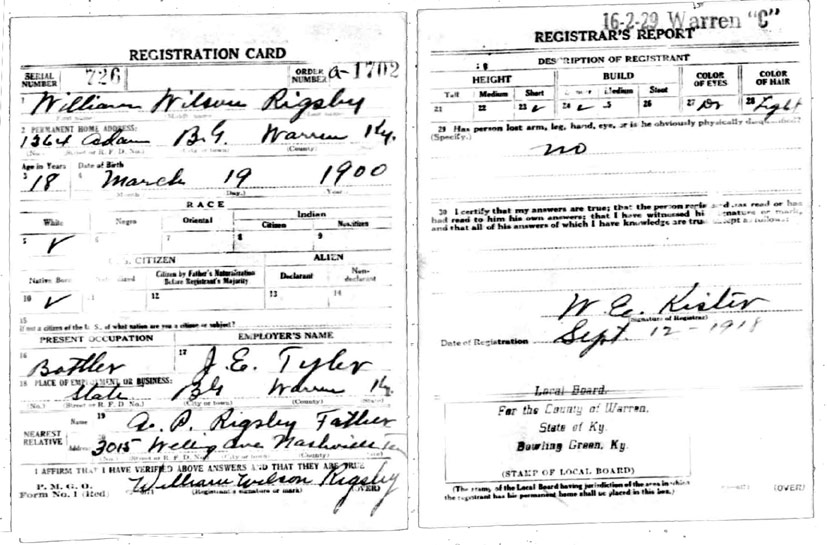 REGISTRATION CARD
SERIAL NUMBER 726 ORDER NUMBER a-1702
1 William Wilson Rigsby
First name Middle name Last name
2 PERMANENT HOME ADDRESS:
1364 Adams B.G. Warren Ky.
(No.) (Street or R. F. D. No.) (City or town) (County)
Age in Years Date of Birth
3 18 4 March 19 1900
Month Day.) Year
RACE
White Negro Oriental Indian
Citizen Noncitizen
5 ✓ 6 7 8 9
CITIZEN ALIEN
Native Born Citizen by Father's Naturalization Before Registrant's Majority Declarant Non-declarant
10 ✓ 12 13 14
15
If not a citizen of the U. S., of what nation are you a citizen or subject?
PRESENT OCCUPATION EMPLOYER'S NAME
16 Bottler 17 J. E. Tyler
18 PLACE OF EMPLOYMENT OR BUSINESS:
State BG Warren Ky.
(No.) (Street or R. F. D. No.) (City or town) (County) (State)
NEAREST RELATIVE Name 19 A. P. Rigsby Father
Address 3015 Ave Nashville Ten
(No.) (Street or R. F. D. No.) (City or town) (County)
I AFFIRM THAT I HAVE VERIFIED ABOVE ANSWERS AND THAT THEY ARE TRUE
P. M. G. O.
Form No. 1 (Red) William Wilson Rigsby
(Registrant's signature or mark) (OVER)
16-2-29 Warren "C"
REGISTRAR'S REPORT
DESCRIPTION OF REGISTRANT
HEIGHT BUILD COLOR OF EYES COLOR OF HAIR
Tall Medium Short Medium Stout
21 22 23 ✓ 24 ✓ 25 26 27 Br 28 Light
29 Has person lost arm, leg, hand, eye, or is he obviously physically disqualified?
(Specify.)
no
30 I certify that my answers are true; that the person registered has read or has
had read to him his own answers; that I have witnessed his signature or mark,
and that all of his answers of which I have knowledge are true, except as follows:
W. E. Kister
(Signature of Registrar)
Date of Registration Sept. 12-1918
Local Board.
For the County of Warren,
State of Ky.
Bowling Green, Ky.
(STAMP OF LOCAL BOARD)
(The stamp of the Local Board having jurisdiction of the area in which
the registrant has his permanent home shall be placed in this box.)
(OVER)